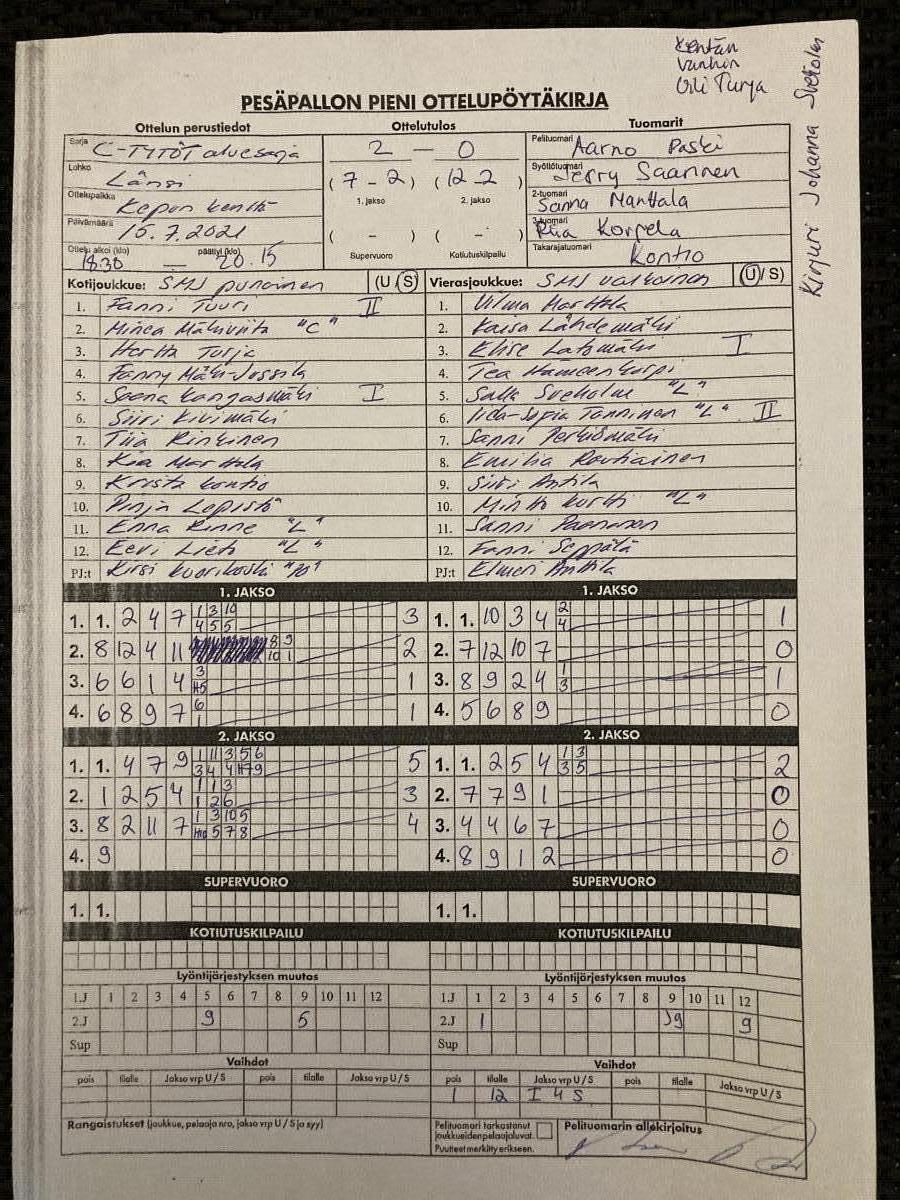 Kentän
Vanhin
Olli Turja
Kirjuri Johanna Sveholm
PESÄPALLON PIENI OTTELUPÖYTÄKIRJA
Ottelun perustiedot Ottelutulos Tuomarit
Sarja C-TYTÖT aluesarja
Lohko Länsi
Ottelupaikka Kepon kenttä
Päivämäärä 15.7.2021
Ottelu alkoi (klo) 18.30 — päättyi (klo) 20.15
2 — 0
(7 - 2) (12 2)
1. jakso 2. jakso
( - ) ( - )
Supervuoro Kotiutuskilpailu
Pelituomari Aarno Paski
Syöttötuomari Jerry Saarinen
2-tuomari Sanna Manttala
3-tuomari Riia Korpela
Takarajatuomari Kontio
Kotijoukkue: SMJ punainen (U/S)
1. Fanni Tuuri II
2. Minea Mäkiviita "C"
3. Hertta Turja
4. Fanny Mäki-Jussila
5. Saana Kangasmäki I
6. Siiri Kivimäki
7. Tiia Rinkinen
8. Kia Marttala
9. Krista Kontio
10. Pinja Lepistö
11. Enna Rinne "L"
12. Eevi Lieto "L"
PJ:t Kirsi Kuorikoski
Vierasjoukkue: SMJ valkoinen (U/S)
1. Vilma Marttala
2. Kaisa Lähdemäki
3. Elise Latomäki I
4. Tea Hämeenkorpi
5. Salla Sveholm "L"
6. Iida-Sofia Tanninen "L" II
7. Sanni Perkiömäki
8. Emilia Rautiainen
9. Siiri Anttila
10. Minttu Kortti "L"
11. Sanni Paananen
12. Fanni Seppälä
PJ:t Elmeri Anttila
1. JAKSO
1. 1. 2 4 7 1 3 10 3
4 5 5
2. 8 12 4 11 8 9 2
10 1
3. 6 6 1 4 3 1
H5
4. 6 8 9 7 6 1
1
1. JAKSO
1. 1. 10 3 4 2 1
4
2. 7 12 10 7 0
3. 8 9 2 4 1 1
3
4. 5 6 8 9 0
2. JAKSO
1. 1. 4 7 9 1 11 3 5 6 5
3 4 4 H7 9
2. 1 2 5 4 1 1 3 3
1 2 6
3. 8 2 11 7 1 3 10 5 4
H10 5 7 8
4. 9
2. JAKSO
1. 1. 2 5 4 1 3 2
3 5
2. 7 7 9 1 0
3. 4 4 6 7 0
4. 8 9 1 2 0
SUPERVUORO SUPERVUORO
1. 1. 1. 1.
KOTIUTUSKILPAILU KOTIUTUSKILPAILU
Lyöntijärjestyksen muutos
1.J 1 2 3 4 5 6 7 8 9 10 11 12
2.J 9 5
Sup
Lyöntijärjestyksen muutos
1.J 1 2 3 4 5 6 7 8 9 10 11 12
2.J 1 9 9
Sup
Vaihdot
pois tilalle Jakso vrp U / S pois tilalle Jakso vrp U / S
Vaihdot
pois tilalle Jakso vrp U / S pois tilalle Jakso vrp U / S
1 12 I 4 S
Rangaistukset (joukkue, pelaaja nro, jakso vrp U / S ja syy)
Pelituomari tarkastanut
joukkueiden pelaajaluvat.
Puutteet merkitty erikseen.
Pelituomarin allekirjoitus